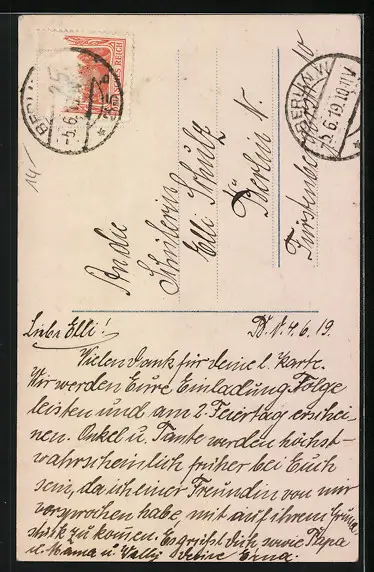 14-
DEUTSCHES REICH
BERLIN W
-5.6.19.10-11V
* 35 b
An die
Schülerin
Elli Schulz
Berlin N.
10
Liebe Elli!
B. d. 4.6.19.
Vielen Dank für deine l. Karte.
Wir werden Eure Einladung Folge
leisten und am 2. Feiertag erschei-
nen. Onkel u. Tante werden höchst-
wahrscheinlich früher bei Euch
sein, da ich einer Freundin von mir
versprochen habe, mit auf ihrem Grund-
stück zu kommen. Es grüßt dich sowie Papa
u. Mama u. Deine Erna.